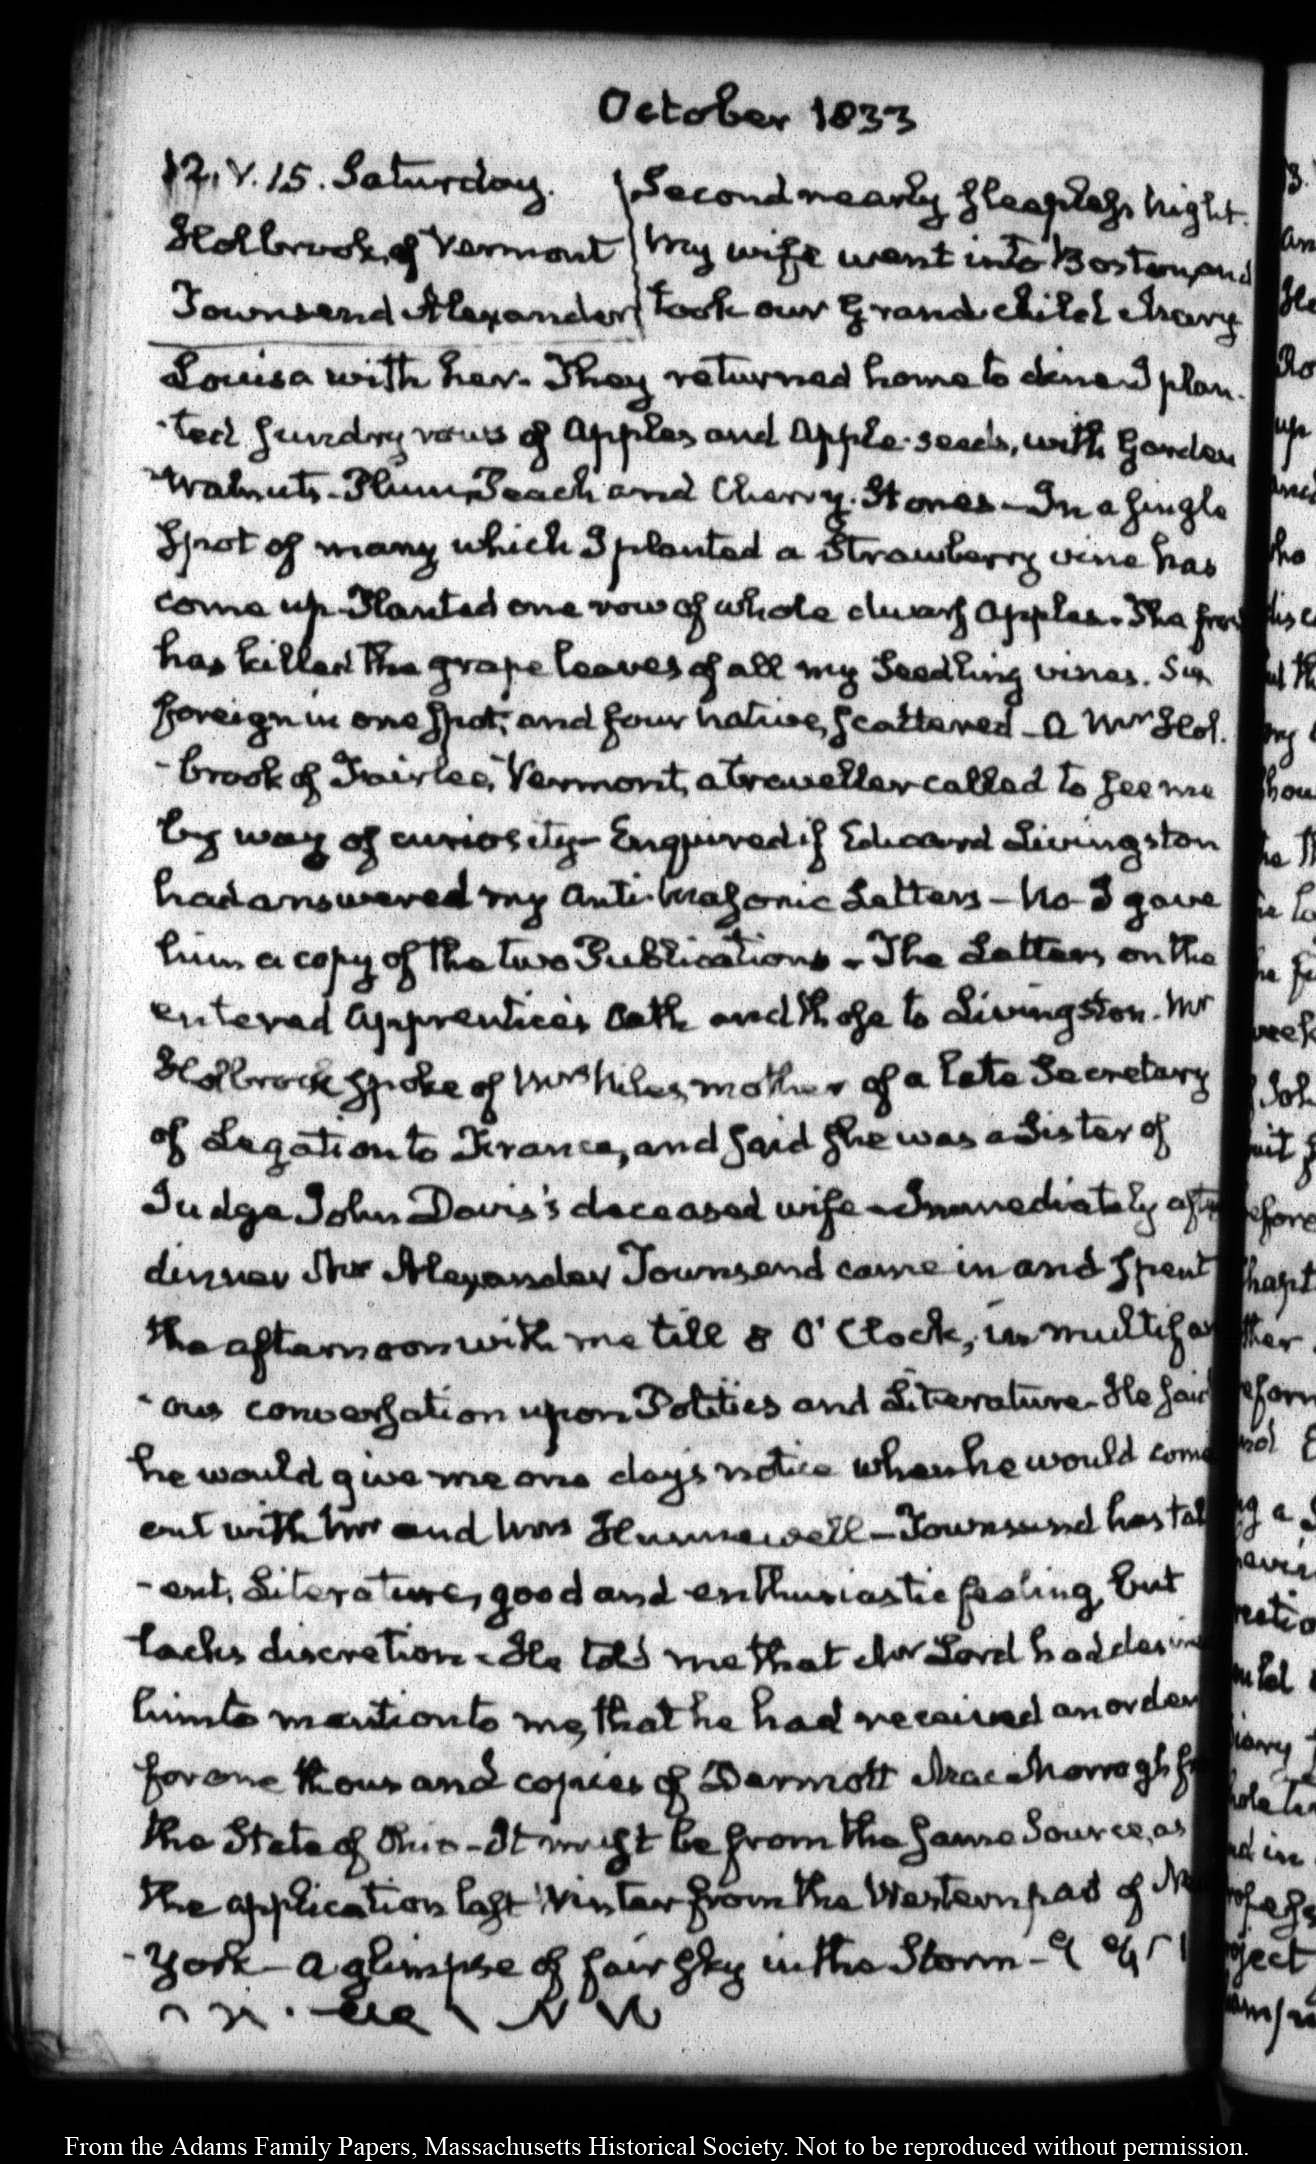 October 1833
12. V. 15. Saturday.
Holbrook, of Vermont
Townsend Alexander
Second nearly sleepless night.
My wife went into Boston, and
took our Grand child Mary
Louisa with her. They returned home to dine. I plan-
-ted sundry rows of Apples and Apple-seeds, with Garden
Walnuts. Plum, Peach and Cherry-Stones - In a single
spot of many which I planted a Strawberry vine has
come up. Planted one row of whole dwarf Apples. The frost
has killed the grape leaves of all my Seedling vines. Six
foreign in one spot, and four native, scattered - A Mr Hol-
-brook of Fairlee, Vermont, a traveller called to see me
by way of curiosity - Enquired if Edward Livingston
had answered my Anti-Masonic Letters - No - I gave
him a copy of the two Publications - The Letters on the
entered Apprentice's Oath and those to Livingston. Mr
Holbrook spoke of Mrs Niles, mother of a late Secretary
of Legation to France, and said she was a Sister of
Judge John Davis's deceased wife - Immediately after
dinner Mr Alexander Townsend came in and spent
the afternoon with me till 8 O'Clock, in multifar
-ous conversation upon Politics and Literature. He said
he would give me one day's notice when he would come
out with Mr and Mrs Hunnewell - Townsend has tal
-ent, Literature, good and enthusiastic feeling, but
lacks discretion - He told me that Mr Lord had desired
him to mention to me, that he had received an order
for one thousand copies of Dermott MacMorrogh from
the State of Ohio - It must be from the same Source, as
the application last Winter from the Western part of New
-York - A glimpse of fair sky in the Storm -
From the Adams Family Papers, Massachusetts Historical Society. Not to be reproduced without permission.